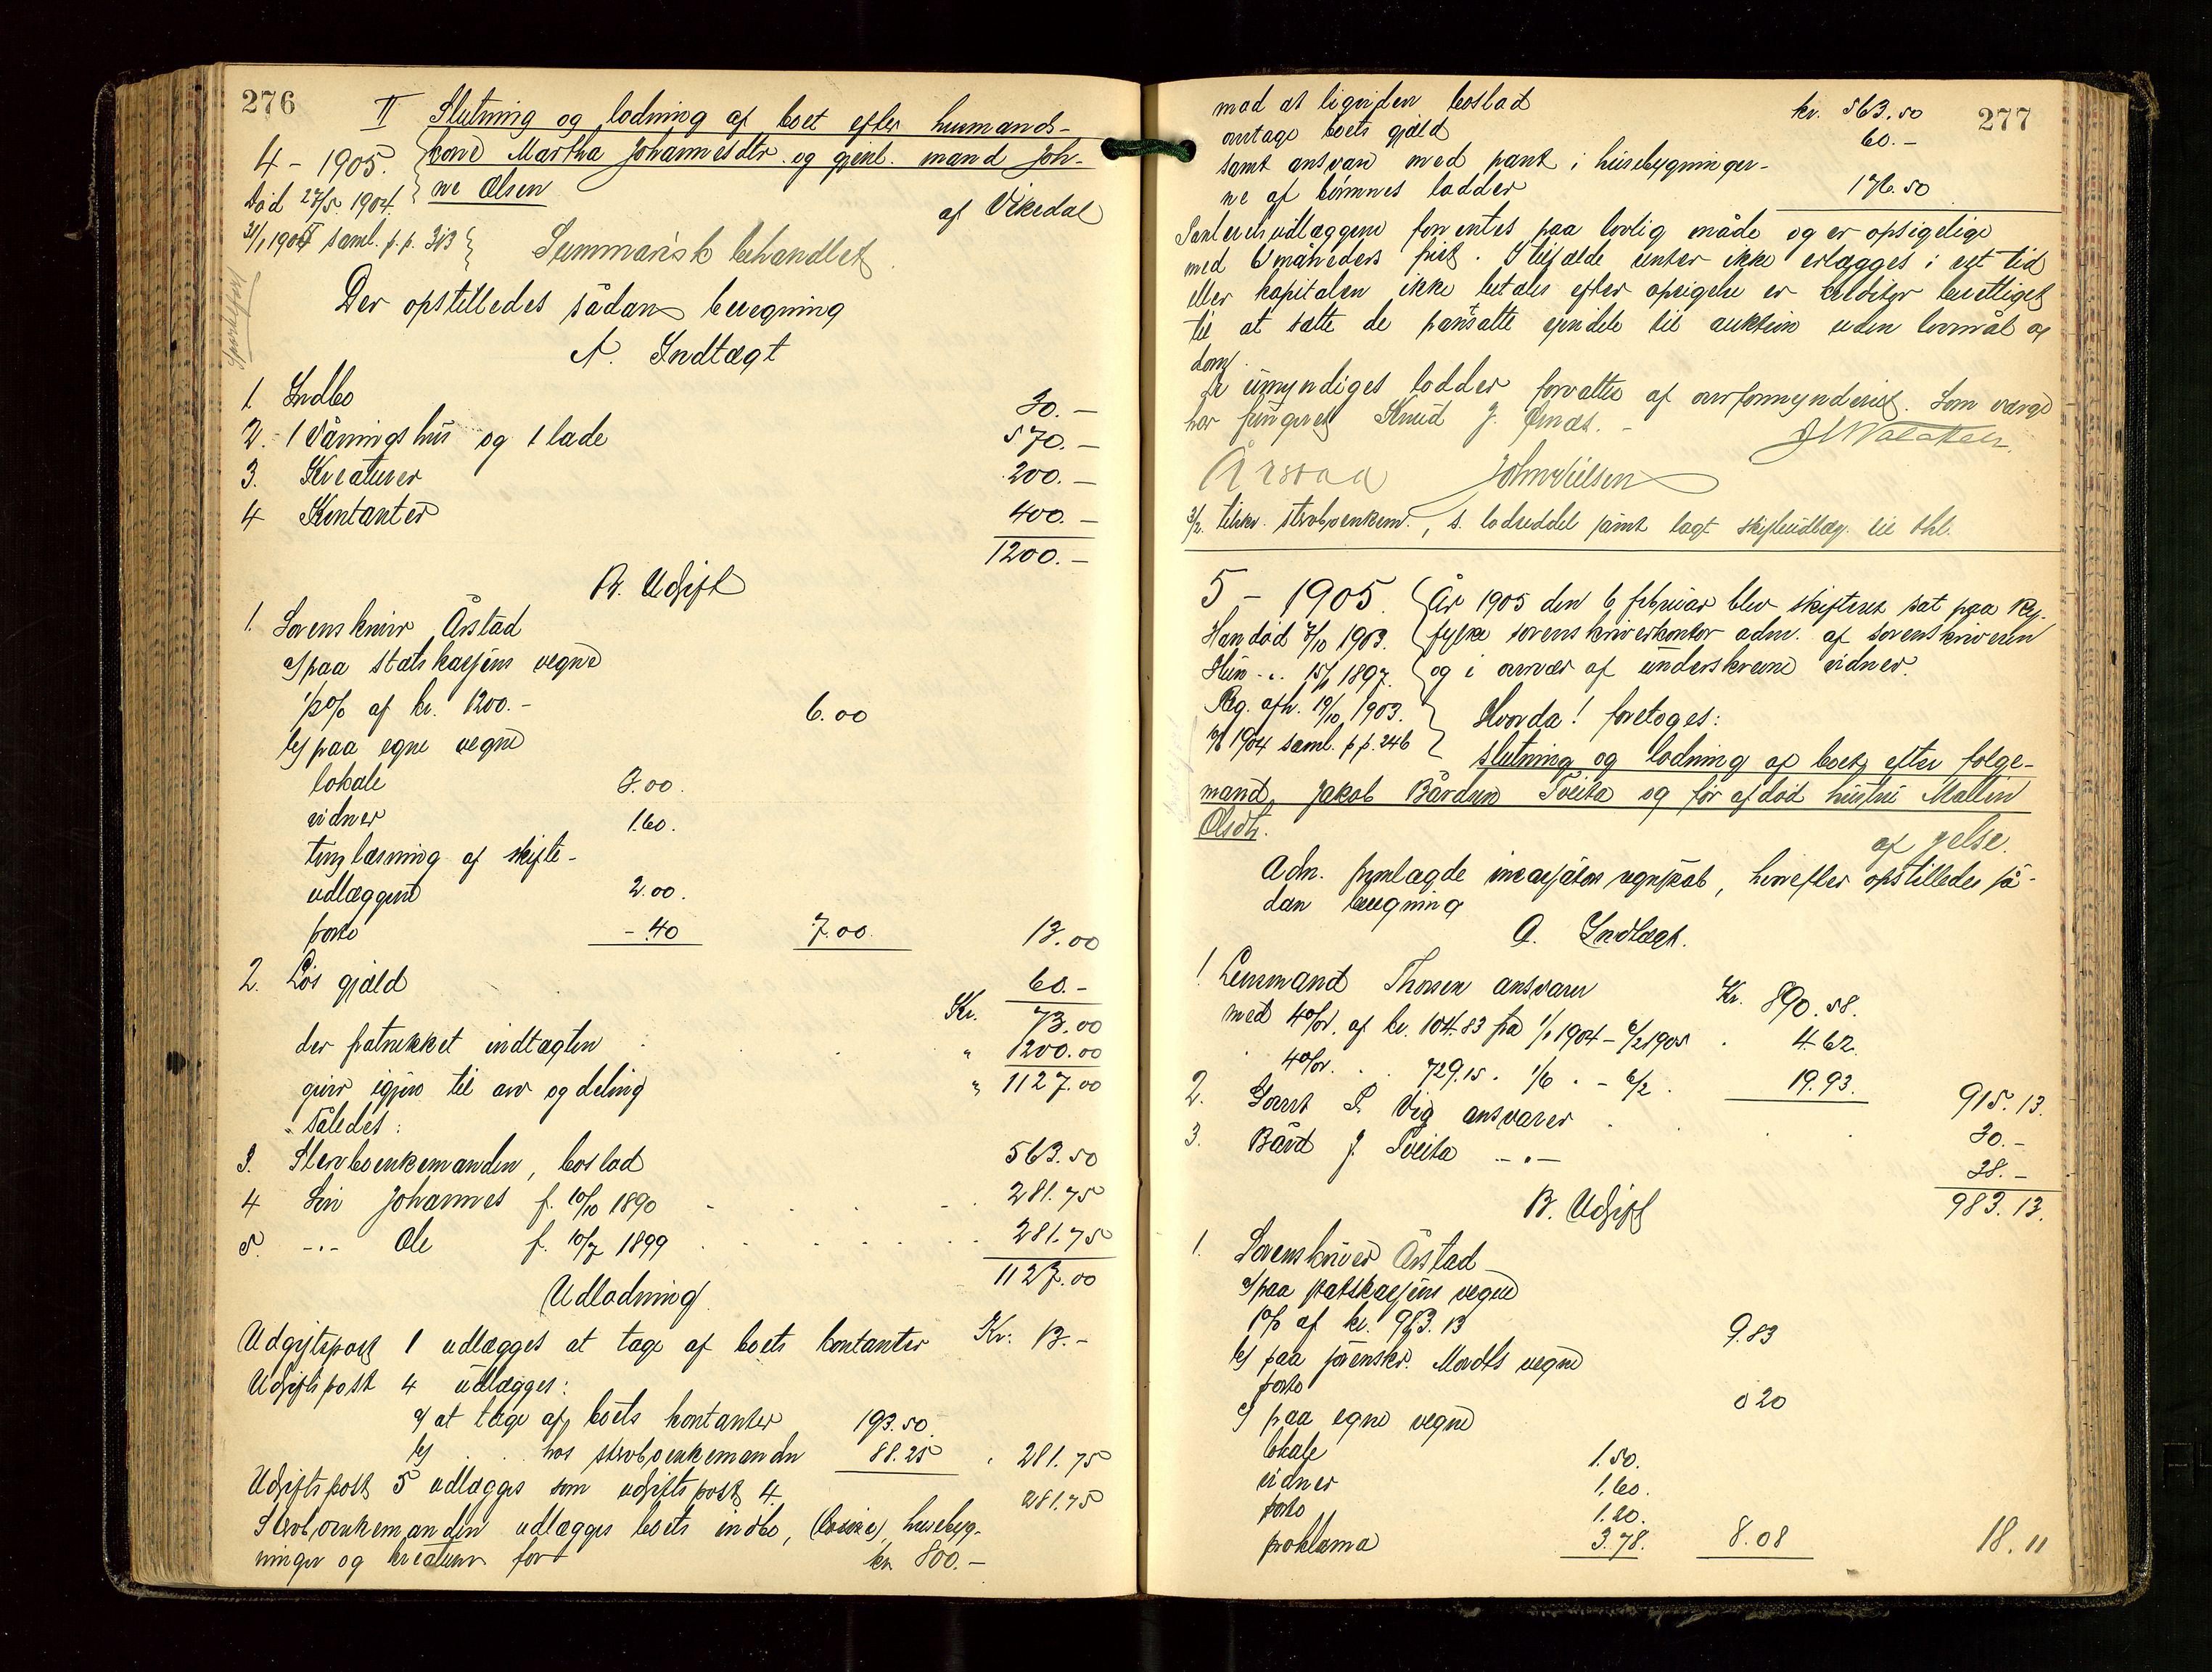 276
II Slutning og lodning af boet efter husmands-
4 - 1905. kone Martha Johannesdtr. og gjenl. mand Joh-
Död 27/5 1904. ne Olsen
af Vikedal
31/1 1905 saml. p. p. 313 Summarisk behandlet
Der opstilledes sådan beregning
A. Indtægt
1. Indbo 30.-
2. 1 Våningshus og 1 lade 570.-
3. Kreaturer 200.-
4 Kontanter 400.-
1200.-
B. Udgift
1. Sorenskriver Årstad
a) paa statskassens vegne
1/2 % af kr. 1200.- 6.00
b) paa egne vegne
lokale 3.00.
vidner 1.60.
tinglæsning af skifte-
udlæggene 2.00.
porto -.40 7.00 13.00
2. Lös gjæld 60.-
Kr. 73.00
der fratrukket indtægten " 1200.00
giver igjen til arv og deling " 1127.00
således:
3. Stervboenkemanden, boslod 563.50
4 Sön Johannes f. 10/10 1890 281.75
5. -"- Ole f. 10/7 1899 281.75
1127.00
Udlodning
Udgiftspost 1 udlægges at tage af boets kontanter Kr. 13.-
Udgiftspost 4 udlægges:
a) at tage af boets kontanter 193.50
b) hos stervboenkemanden 88.25 " 281.75
Udgiftspost 5 udlægges som udgiftspost 4. 281.75
Stervboenkemanden udlægges boets indbo, husebyg-
ninger og kreaturer for kr. 800.-
277
mod at ligviden boslod kr. 563.50
overtage boets gjæld 60.-
samt ansvar med pant i husebygninger-
ne af börnenes lodder 176.50
Panteretsudlæggene forrentes paa lovlig måde og er opsigelige
med 6 måneders frist. I tilfælde renter ikke erlægges i ret tid
eller kapitalen ikke betales efter opsigelse er kreditor berettiget
til at sætte de pantsatte eiendele til auktion uden lovmål og
dom.
De umyndiges lodder forvaltes af overformynderiet. Som værge
har fungeret Knud J. Ørnæs. -
Årstad John Nielsen
3/2. tilskr. stervboenkem., s. lodseddel samt lagt skifteudlæg. til thl.
5 - 1905. År 1905 den 6 februar blev skifteret sat paa Ry-
Han död 7/10 1903. fylke sorenskriverkontor adm. af sorenskriveren
Hun -"- 15/1 1897. og i overvær af underskrevne vidner.
Reg. afh. 19/10 1903. Hvorda! foretoges:
1904 saml. p. p. 246
slutning og lodning af boet efter folge-
mand Jakob Bårdsen Tveita og för afdöd hustru Mallin
Olsdtr.
af Jelse.
Adm. fremlagde incassators regnskab, hvorefter opstilledes så-
dan beregning
A. Indtægt.
1 Lensmand Thorsen ansvarer Kr. 890.58.
med 4 % af kr. 104.83 fra 1/1 1904 - 6/2 1905 4.62.
4 % 729.15. 1/6 - 6/2. 19.93. 915.13.
2. Gaut S. Vig ansvarer 30.-
3. Bård J. Tveita -"- 38.-
983.13.
B. Udgift
1. Sorenskriver Årstad
a) paa statskassens vegne
1 % af kr. 983.13 9.83
b) paa sorenskr. vegne
porto 0 20
c) paa egne vegne
lokale 1.50.
vidner 1.60.
porto 1.20.
proklama 3.78. 8.08 18.11